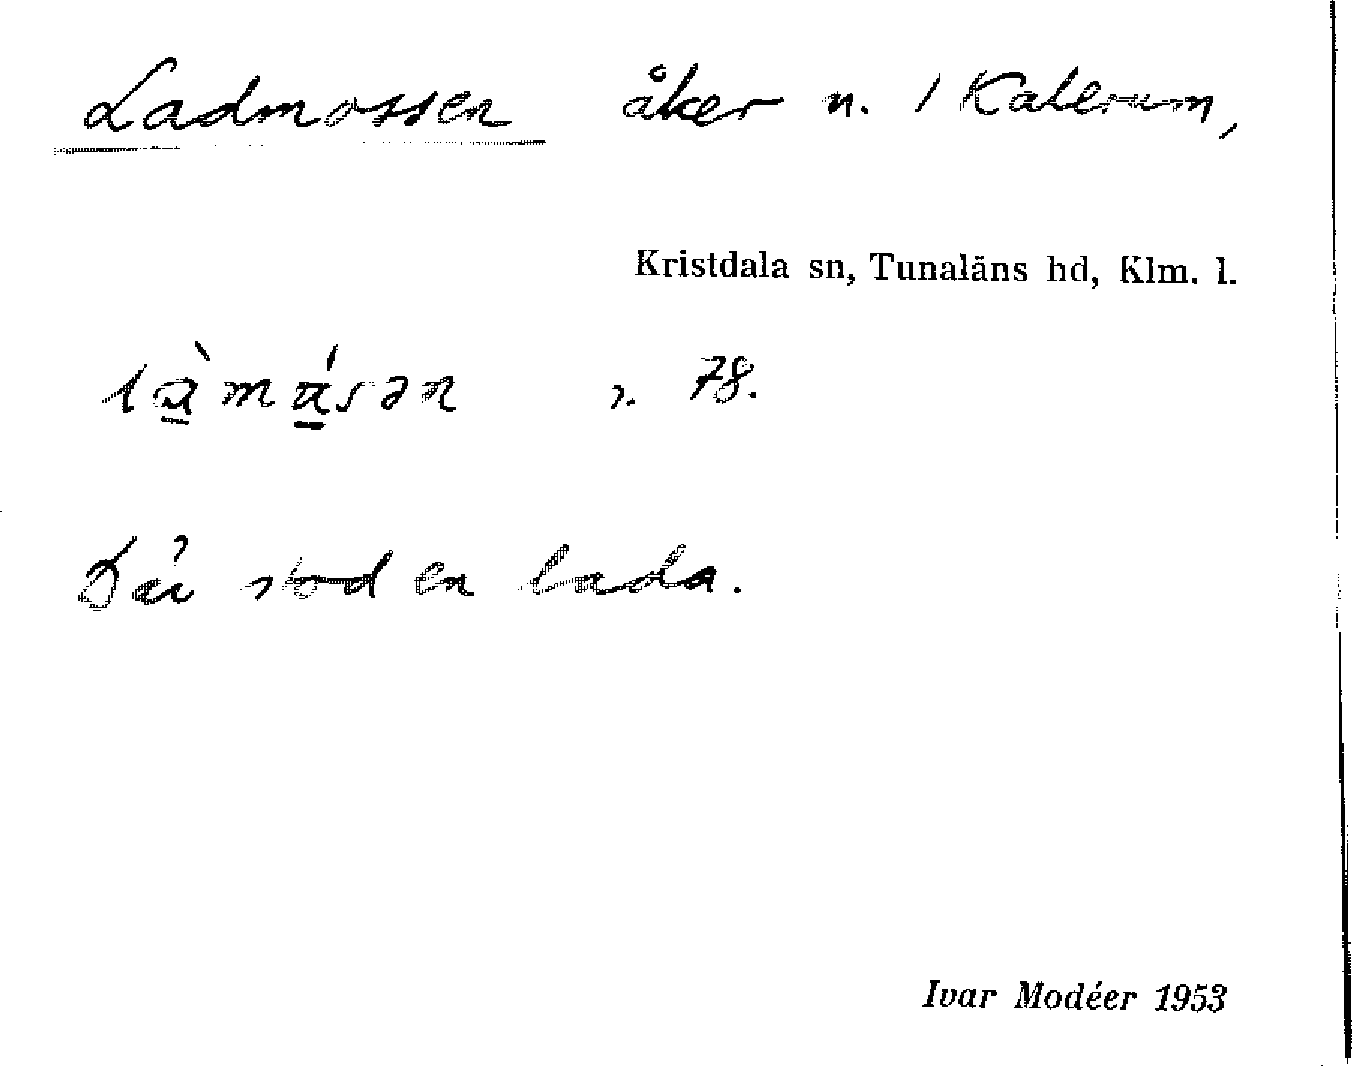 Ladmossen åker n. / Kalerum,
Kristdala sn, Tunaläns hd, Klm. l.
s. 78.
Där stod en lada.
Ivar Modéer 1953